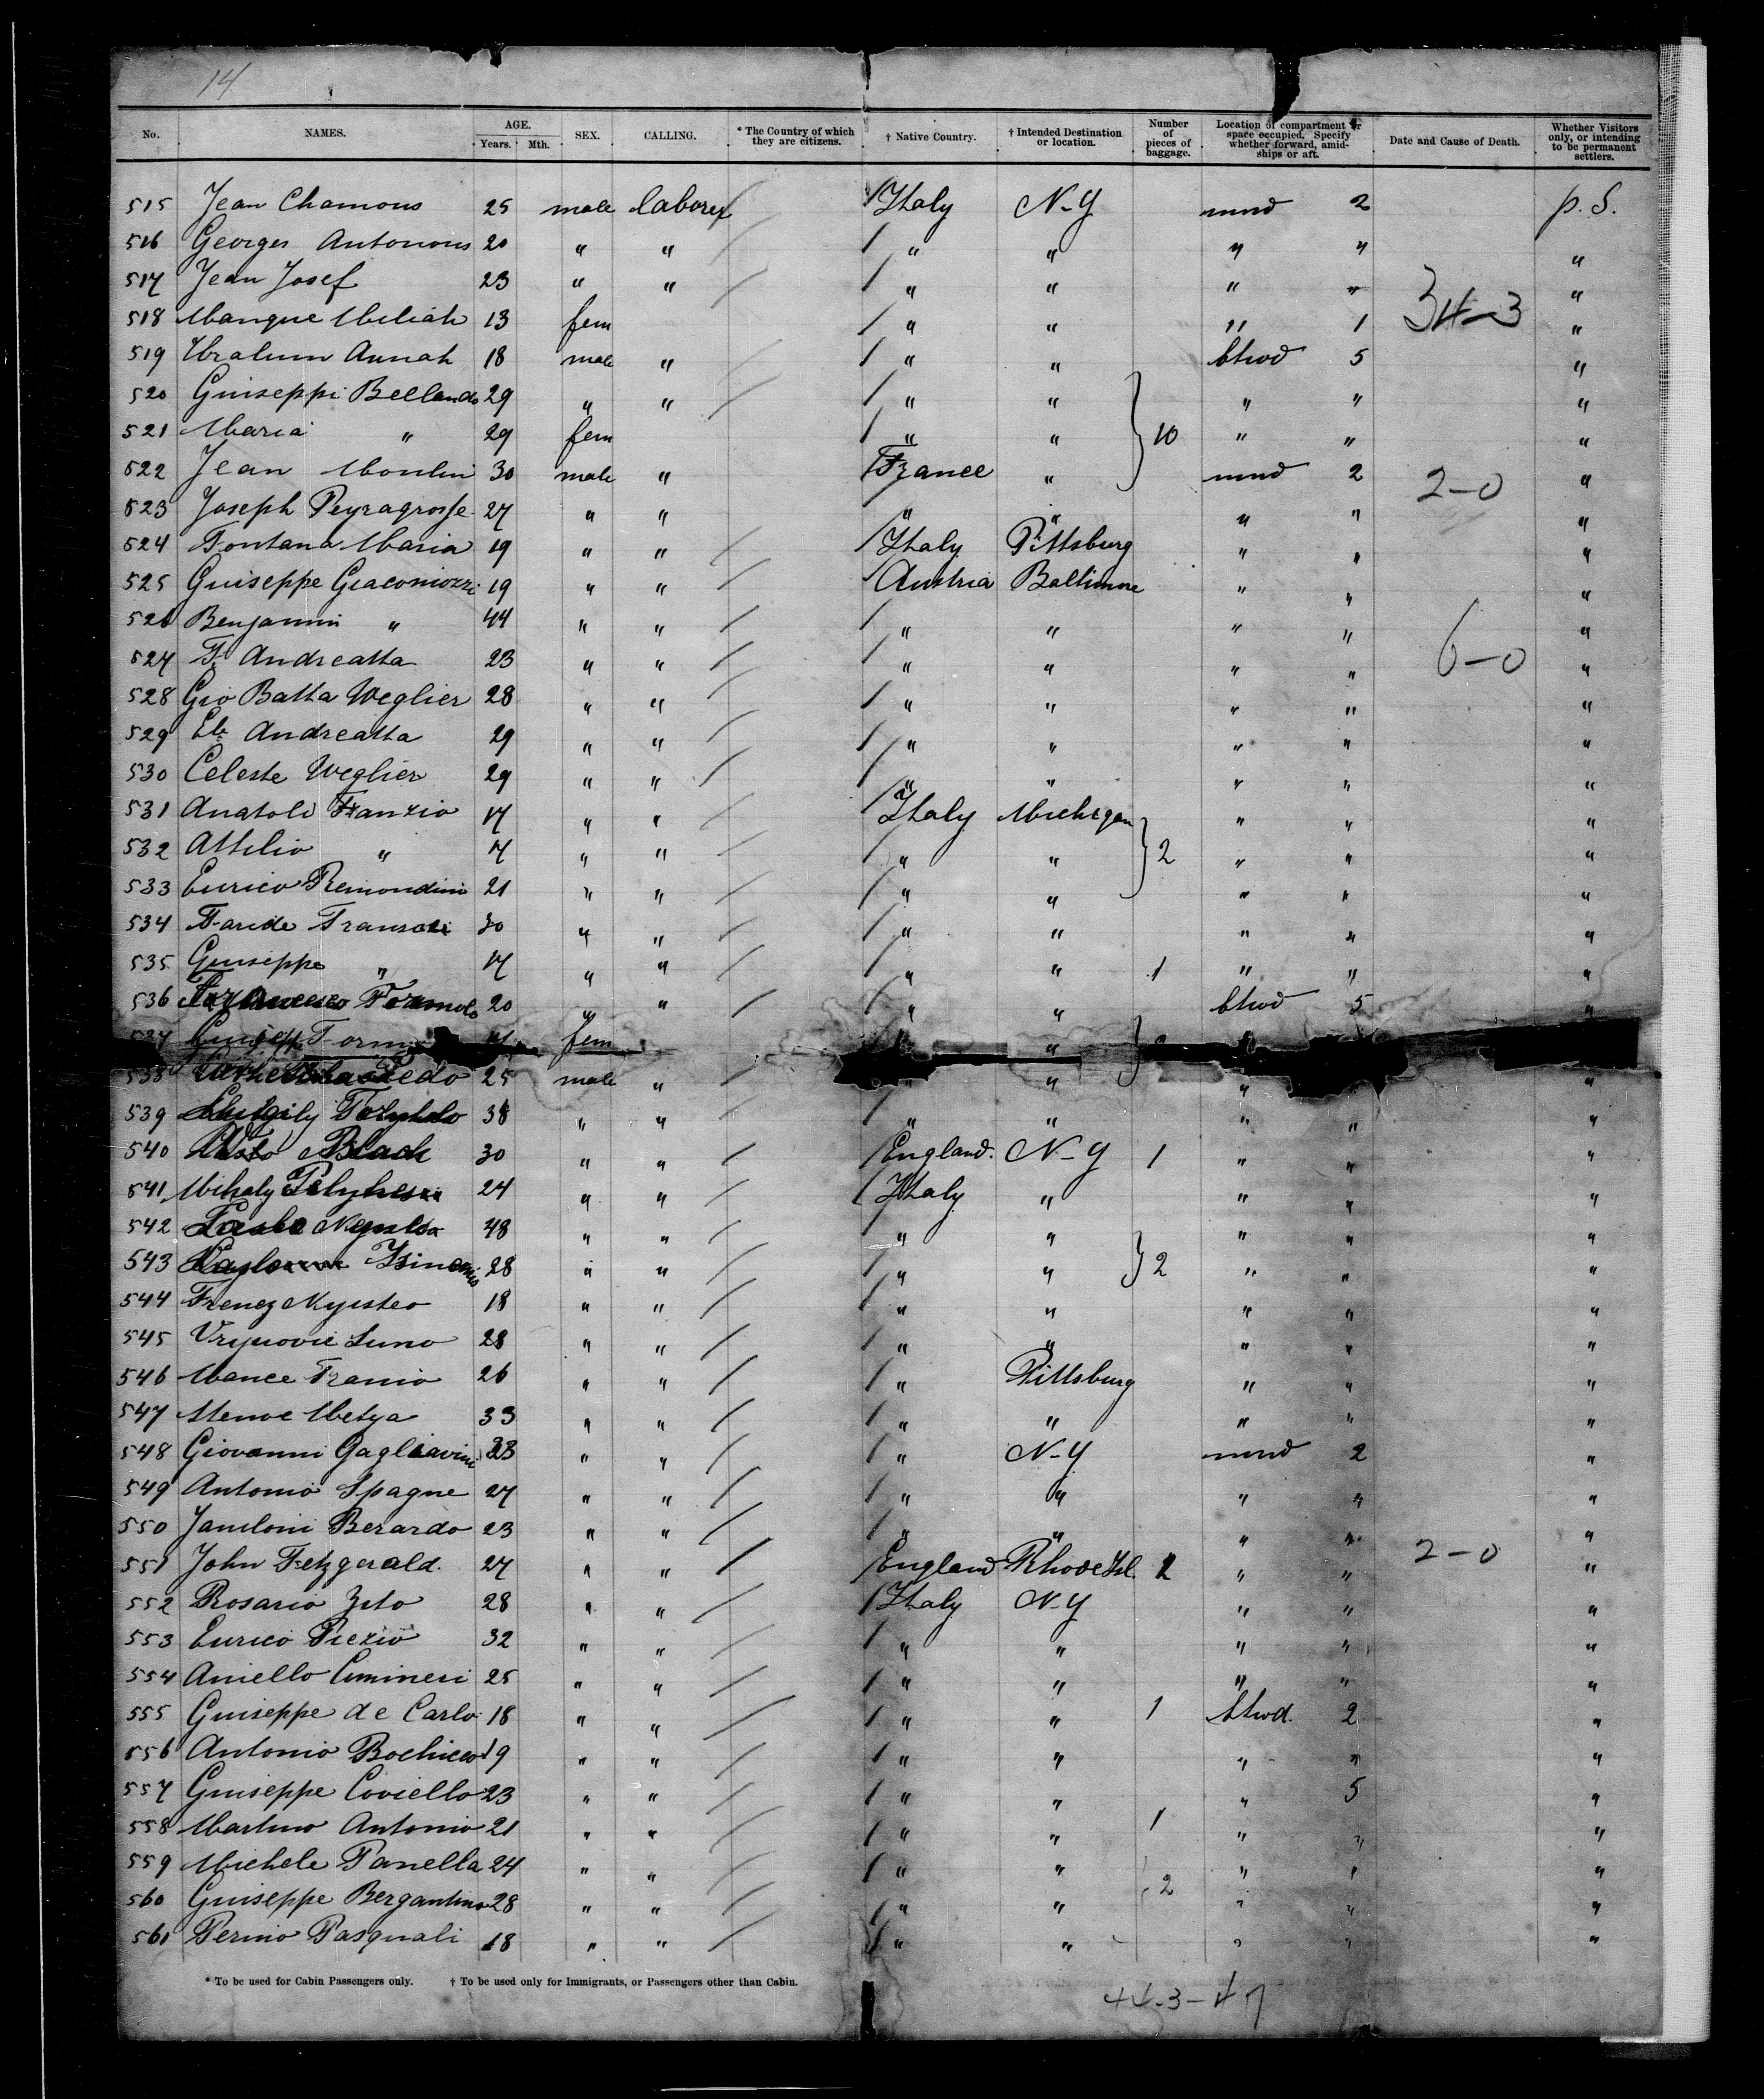 14
No. NAMES. AGE. Years. Mth. SEX. CALLING. * The Country of which they are citizens. † Native Country. † Intended Destination or location. Number of pieces of baggage. Location of compartment or space occupied. Specify whether forward, amidships or aft. Date and Cause of Death. Whether Visitors only, or intending to be permanent settlers.
515 Jean Chamous 25 male laborer / Italy N-Y 2 p. S.
516 Georges Antonous 20 " " / " " " " "
517 Jean Josef 23 " " / " " " " "
518 13 fem / " " " 1 34-3 "
519 Annah 18 male " / " " 5 "
520 Guiseppi Bellando 29 " " / " " " " "
521 Maria " 29 fem / " " 10 " " "
522 Jean Moulin 30 male " / France " 2 2-0 "
523 Joseph Peyragrosse 27 " " / " " " " "
524 Fontana Maria 19 " " / Italy Pittsburg " " "
525 Guiseppe Giacomozzi 19 " " / Austria Baltimore " " "
526 Benjamin " 44 " " / " " " " "
527 F. Andreatta 23 " " / " " " " 6-0 "
528 Gio Batta Weglier 28 " " / " " " " "
529 Andreatta 29 " " / " " " " "
530 Celeste Weglier 29 " " / " " " " "
531 Anatoli Franzio 17 " " / Italy Michigan " " "
532 Attilio " 17 " " / " " 2 " " "
533 Enrico Remondini 21 " " / " " " " "
534 30 " " / " " " " "
535 Guiseppe " 17 " " / " " 1 " " "
536 Francesco Formolo 20 " " / " " 5 "
537 Guiseppe fem "
538 25 male " / " " " "
539 38 " " / " " " " "
540 Black 30 " " / England. N-Y 1 " " "
541 Mihaly 24 " " / Italy " " " "
542 48 " " / " " " " "
543 28 " " / " " 2 " " "
544 Frenez Nyisteo 18 " " / " " " " "
545 28 " " / " " " " "
546 Mance Franio 26 " " / " Pittsburg " " "
547 Metya 33 " " / " " " " "
548 Giovanni Gagliavini 33 " " / " N-Y 2 "
549 Antonio Spagne 27 " " / " " " " "
550 Janiloni Berardo 23 " " / " " " " "
551 John Fetzgerald. 27 " " / England Rhode Isl. " " 2-0 "
552 Rosario Zito 28 " " / Italy N-Y " " "
553 Enrico Piezio 32 " " / " " " " "
554 Aniello Cimineri 25 " " / " " " " "
555 Guiseppe de Carlo 18 " " / " " 1 2 "
556 Antonio Bochicco 19 " " / " " " " "
557 Guiseppe Coviello 23 " " / " " " 5 "
558 Martino Antonio 21 " " / " " 1 " " "
559 Michele Panella 24 " " / " " " " "
560 Guiseppe Bergantino 28 " " / " " 2 " " "
561 Perino Pasquali 18 " " / " " " " "
* To be used for Cabin Passengers only. † To be used only for Immigrants, or Passengers other than Cabin.